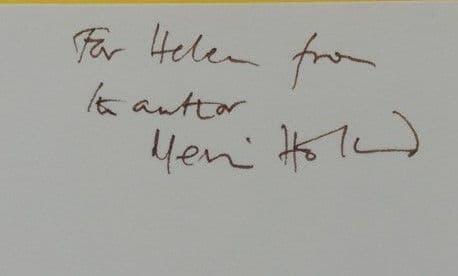 For Helen from
the author
Merlin Holland